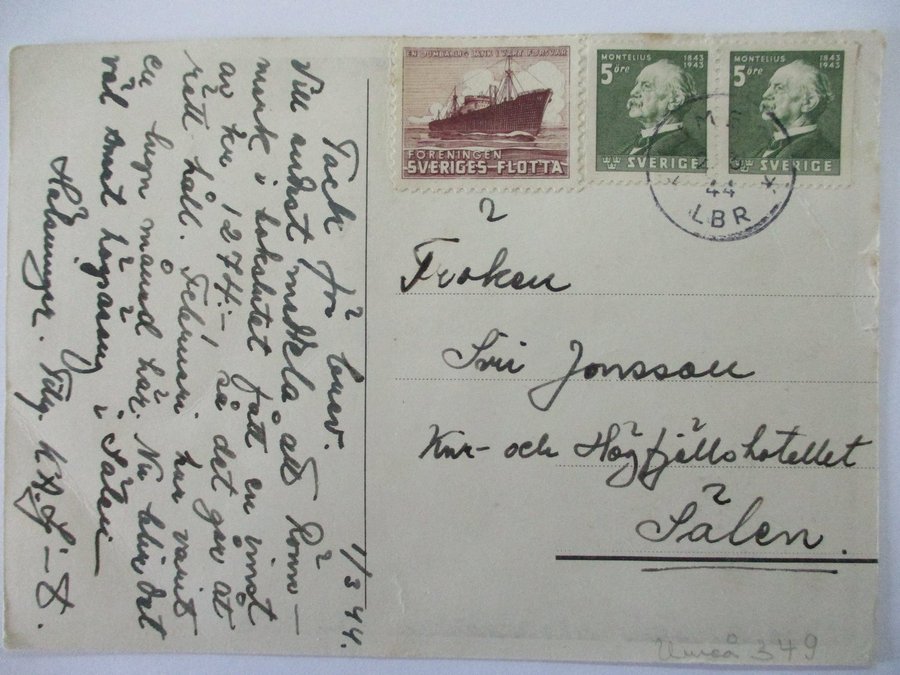 EN OUMBÄRLIG LÄNK I VÅRT FÖRSVAR
FÖRENINGEN
SVERIGES-FLOTTA
MONTELIUS 1843
1943
5 öre
SVERIGE
MONTELIUS 1843
1943
5 öre
SVERIGE
44
LBR
Fröken
Siri Jonsson
Kur- och Högfjällshotellet
Sälen.
Umeå 349
1/3 44.
Tack för brev.
Vill endast meddela att Rönn-
mark i bokslutet fått en vinst
av kr 1274:- så det går åt
rätt håll. Februari har varit
en lugn månad här. Nu blir det
väl snart högsäsong i Sälen
Hälsningar.